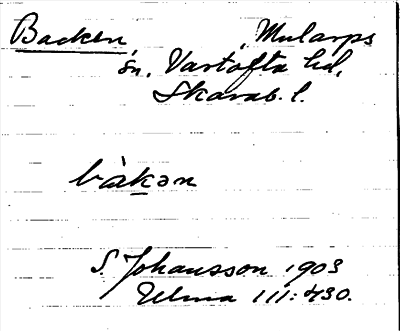 Backen, Mularps
sn. Vartofta hd,
Skarab. l.
bàkən
S. Johansson 1903
Uelma 111: 430.